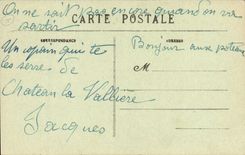 On ne sait pas encore quand on va
sortir
CARTE POSTALE
CORRESPONDANCE
Un copain qui te
les serre de
Chateau la Vallière
Jacques
Bonjour aux poteaux
M